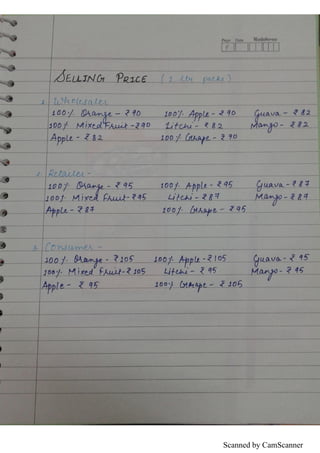 Page Date
SELLING PRICE (1 ltr packs)
1. Wholesaler
100% Orange - ₹90 100% Apple - ₹90 Guava - ₹82
100% Mixed Fruit - ₹90 Litchi - ₹82 Mango - ₹82
Apple - ₹82 100% Grape - ₹90
2. Retailer -
100% Orange - ₹95 100% Apple - ₹95 Guava - ₹87
100% Mixed Fruit - ₹95 Litchi - ₹87 Mango - ₹87
Apple - ₹87 100% Grape - ₹95
3. Consumer -
100% Orange - ₹105 100% Apple - ₹105 Guava - ₹95
100% Mixed Fruit - ₹105 Litchi - ₹95 Mango - ₹95
Apple - ₹95 100% Grape - ₹105
Scanned by CamScanner